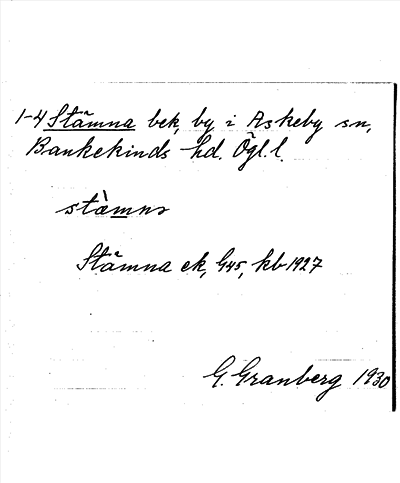 1-4 Stämna bek, by i Askeby sn,
Bankekinds hd. Ögl. l.
stämna
Stämna ek, G45, kb 1927
G. Granberg 1930